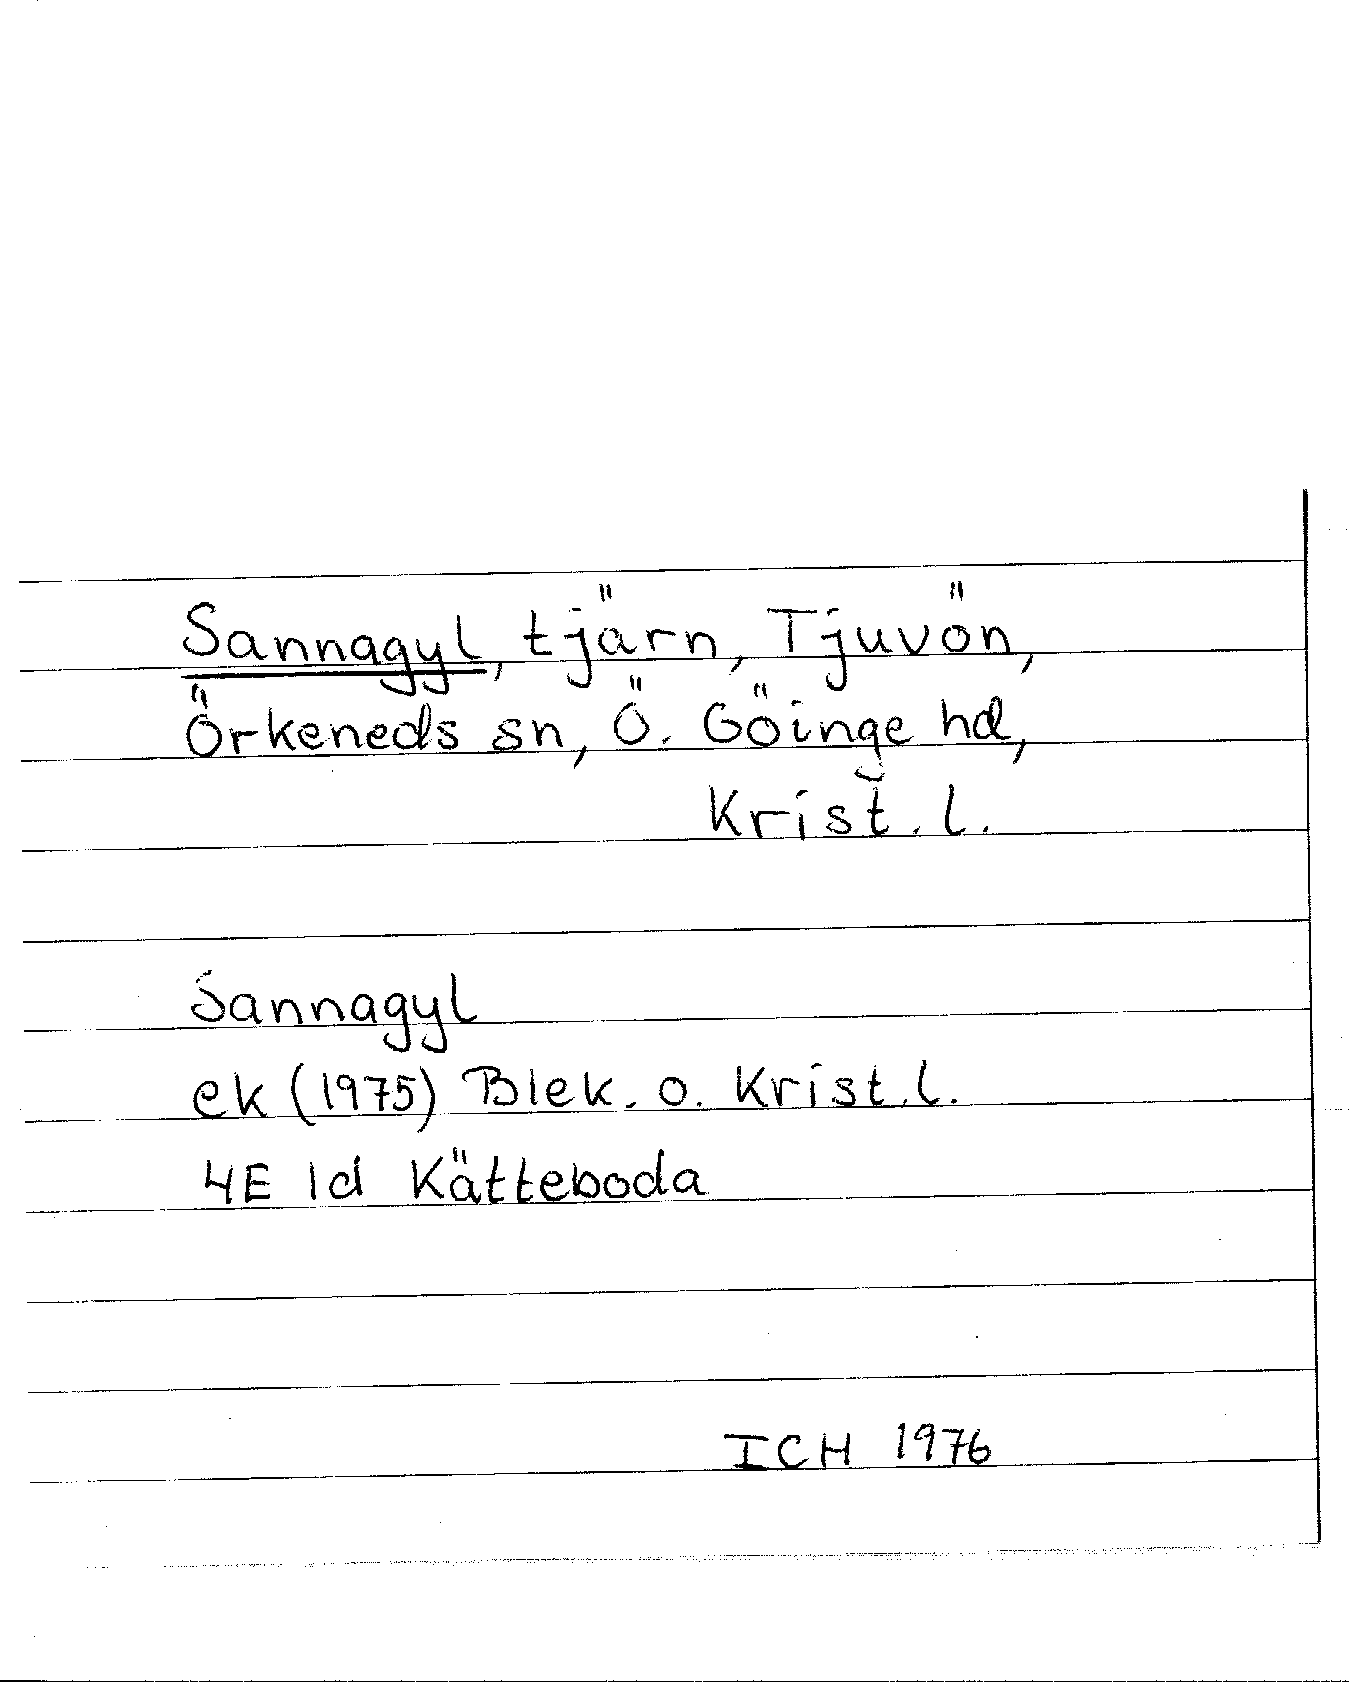 Sannagyl, tjärn, Tjuvön,
Örkeneds sn, Ö. Göinge hd,
Krist. l.
Sannagyl
ek (1975) Blek. o. Krist. l.
4E 1d Kätteboda
ICH 1976